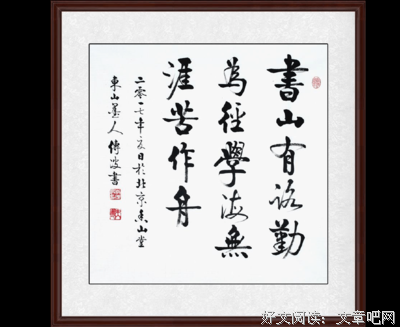 書山有路勤
為徑學海無
涯苦作舟
二零一七年夏日於北京香山堂
東山墨人傅波書
好文阅读：文章吧网